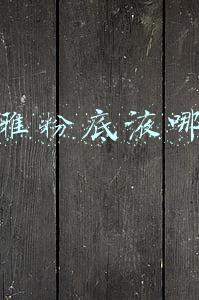 雅粉底液哪